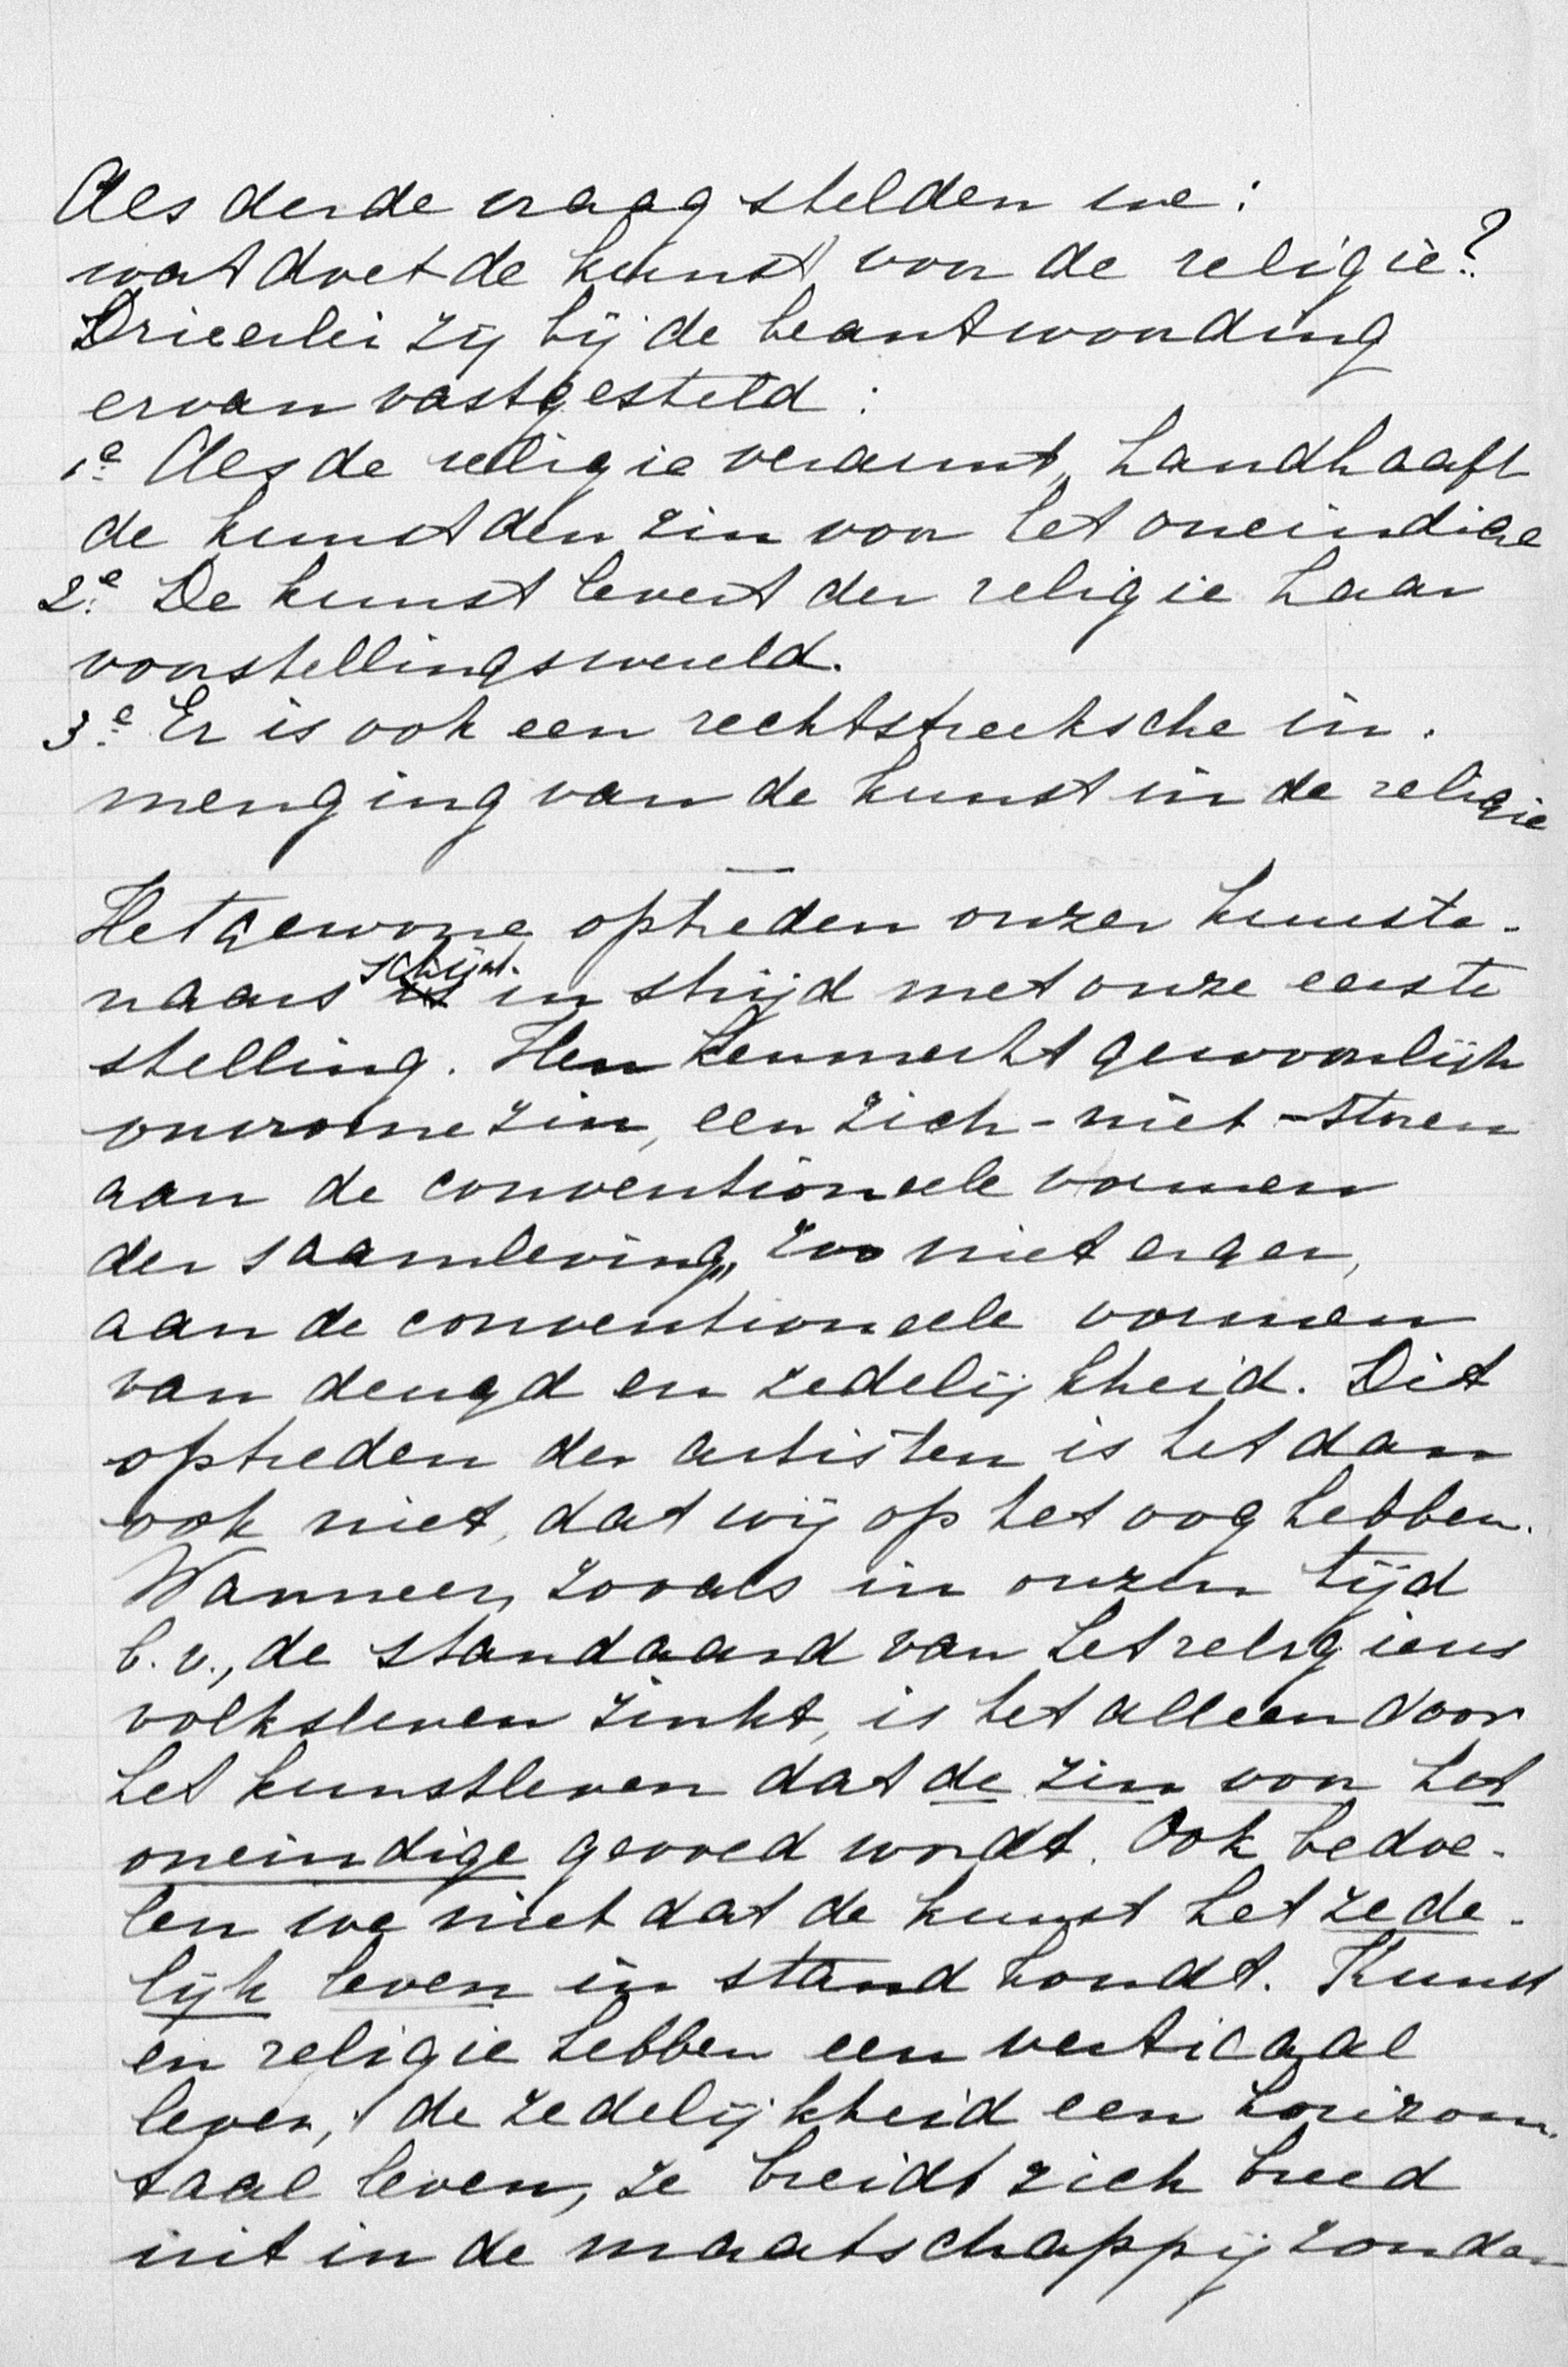 Als derde vraag stelden we:
wat doet de kunst voor de religie?
Drieërlei zij bij de beantwoording
ervan vastgesteld:
1e Als de religie verarmt, handhaaft
de kunst den zin voor het oneindige
2e De kunst levert der religie haar
voorstellingswereld.
3e Er is ook een rechtstreeksche in-
menging van de kunst in de religie
—
Het gewone optreden onzer kunste-
naars schijnt in strijd met onze eerste
stelling. Hen kenmerkt gewoonlijk
onvrome zin, een zich-niet-storen
aan de conventioneele vormen
der saamleving, zoo niet erger,
aan de conventioneele vormen
van deugd en zedelijkheid. Dit
optreden der artisten is het dan
ook niet, dat wij op het oog hebben.
Wanneer, zooals in onzen tijd
b.v., de standaard van het religieus
volksleven zinkt, is het alleen door
het kunstleven dat de zin voor het
oneindige gevoed wordt. Ook bedoe-
len we niet dat de kunst het zede-
lijk leven in stand houdt. Kunst
en religie hebben een verticaal
leven, de zedelijkheid een horizon-
taal leven, ze breidt zich breed
uit in de maatschappij zonder